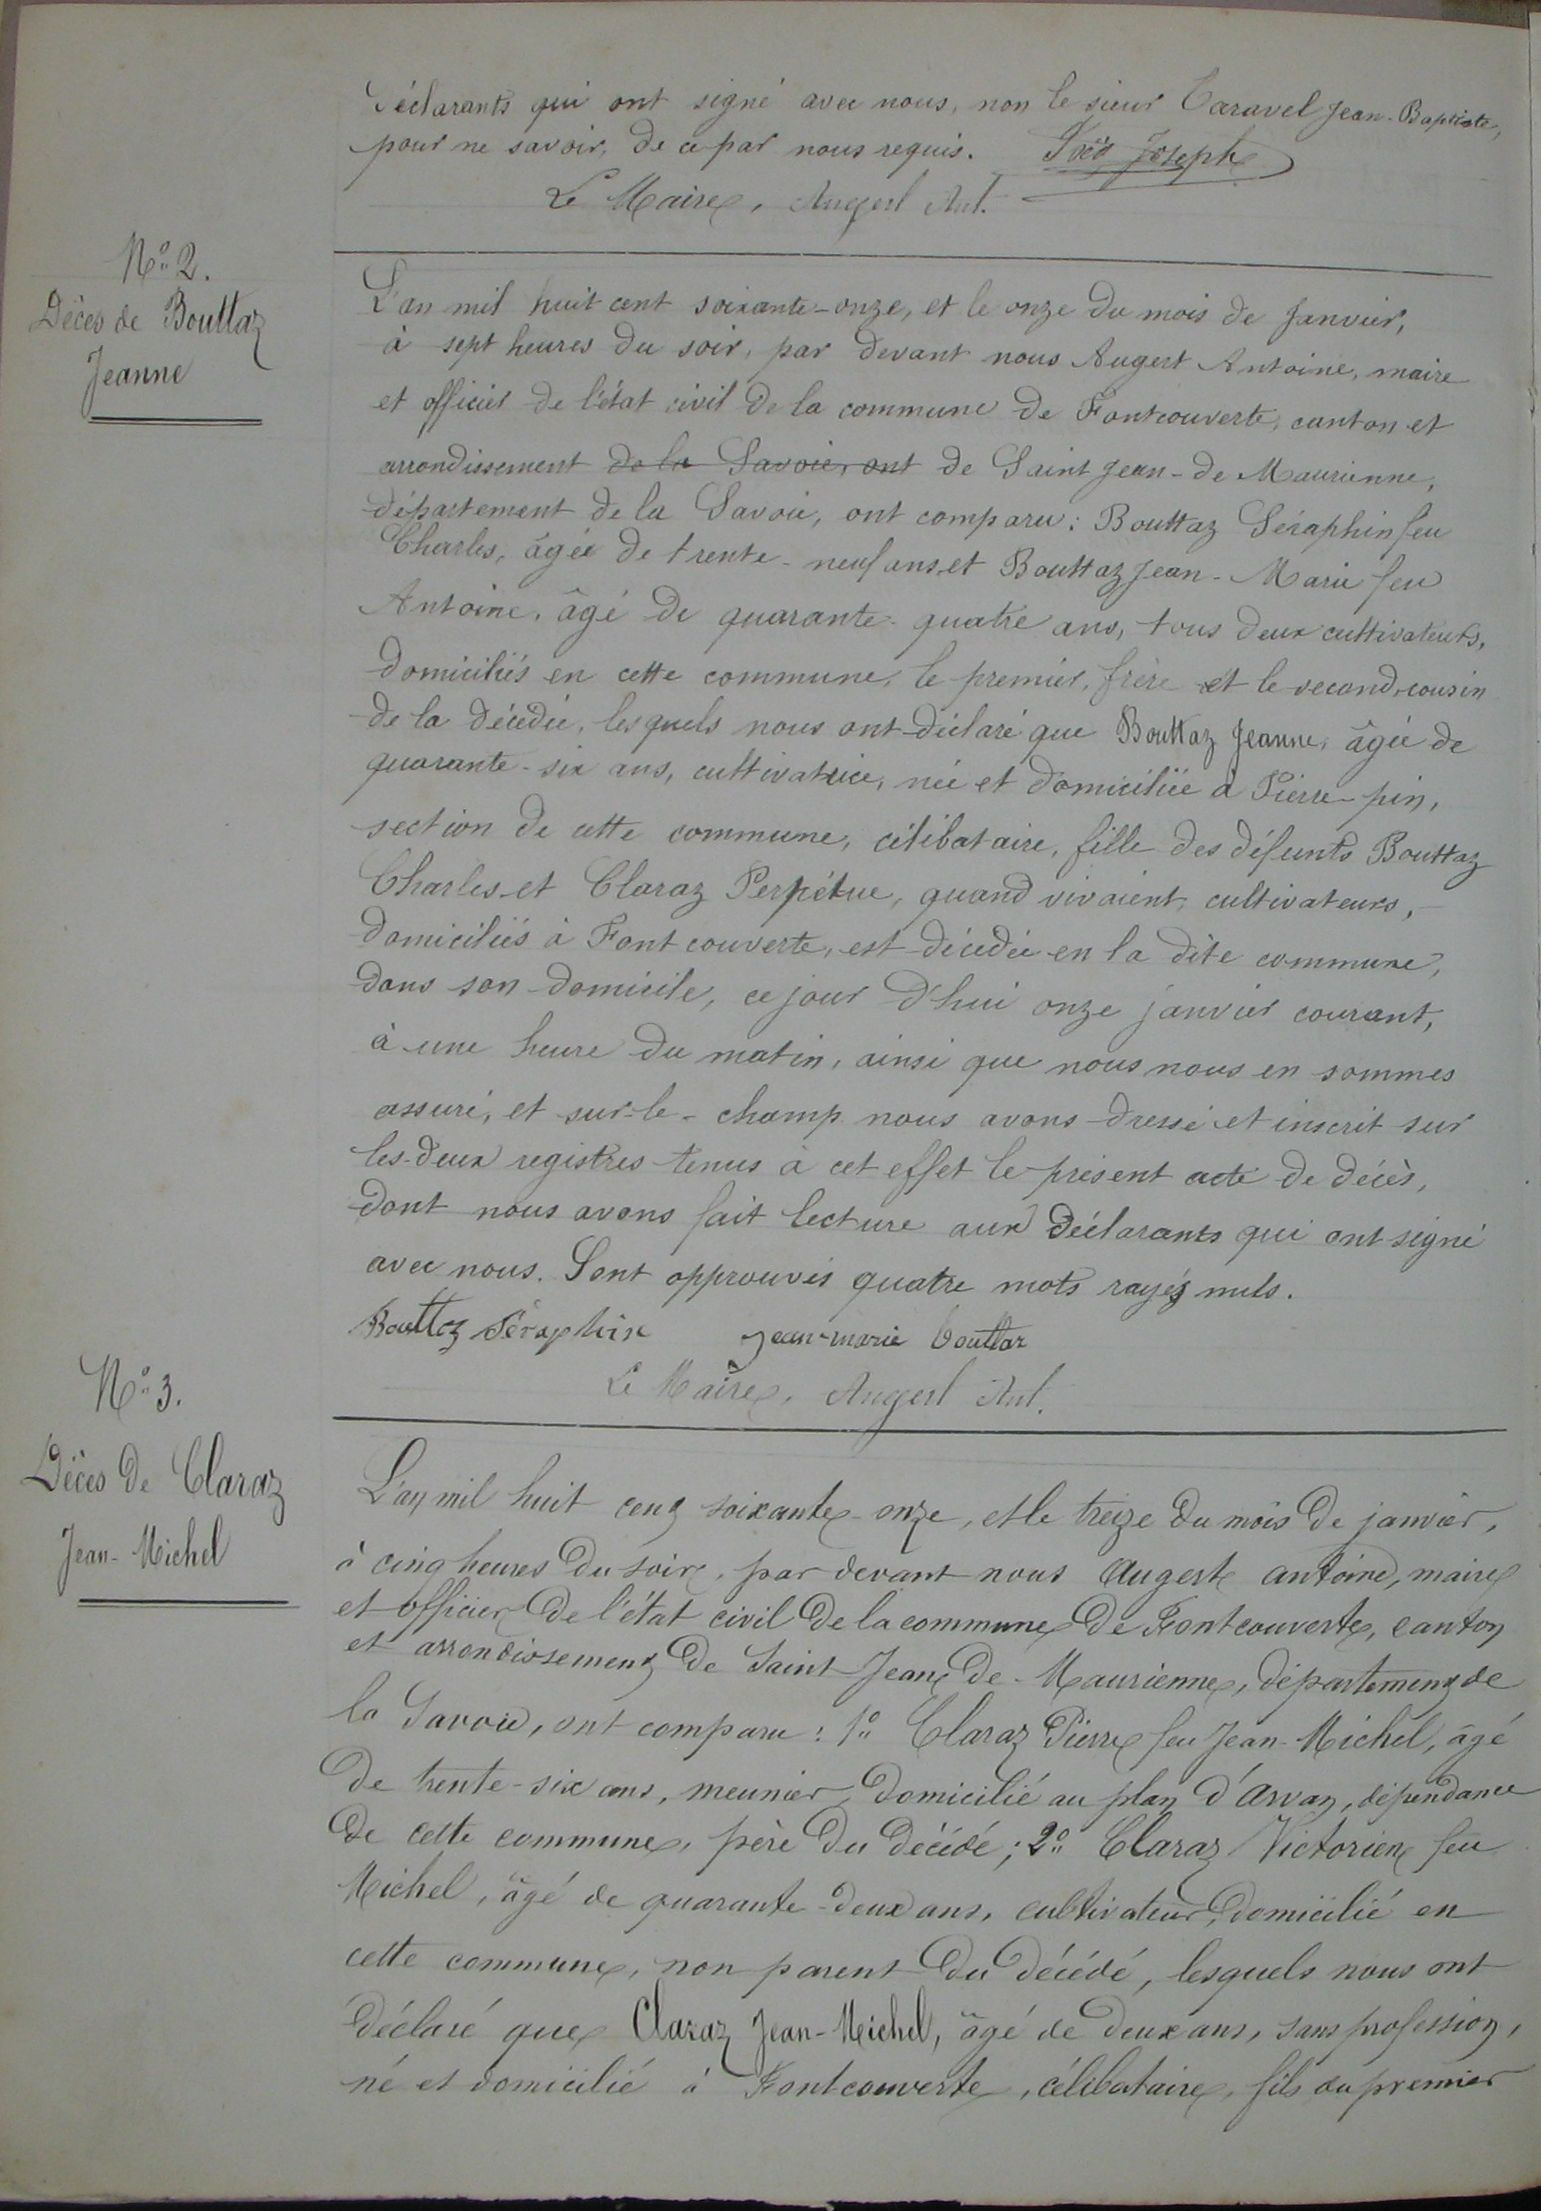 déclarants qui ont signé avec nous, non le sieur Taravel Jean-Baptiste,
pour ne savoir, de ce par nous requis. Joseph
Le Maire, Augert Ant.
N° 2.
Décès de Bouttaz
Jeanne
L'an mil huit cent soixante-onze, et le onze du mois de Janvier,
à sept heures du soir, par devant nous Augert Antoine, maire
et officier de l'état civil de la commune de Fontcouverte, canton et
arrondissement de la Savoie, ont de Saint Jean-de Maurienne,
département de la Savoie, ont comparu: Bouttaz Séraphin feu
Charles, âgée de trente-neuf ans, et Bouttaz Jean-Marie feu
Antoine, âgé de quarante-quatre ans, tous deux cultivateurs,
domiciliés en cette commune, le premier, frère et le second, cousin
de la décédée, lesquels nous ont déclaré que Bouttaz Jeanne, âgée de
quarante-six ans, cultivatrice, née et domiciliée à Pierre-pin,
section de cette commune, célibataire, fille des défunts Bouttaz
Charles et Claraz Perpétue, quand vivaient, cultivateurs,
domiciliés à Fontcouverte, est décédée en la dite commune,
dans son domicile, ce jour d'hui onze janvier courant,
à une heure du matin, ainsi que nous nous en sommes
assuré, et sur-le-champ nous avons dressé et inscrit sur
les deux registres tenus à cet effet le présent acte de décès,
dont nous avons fait lecture aux déclarants qui ont signé
avec nous. Sont approuvés quatre mots rayés nuls.
Bouttaz Séraphin Jean-marie bouttaz
Le Maire, Augert Ant.
N° 3.
Décès de Claraz
Jean-Michel
L'an mil huit cent soixante-onze, et le treize du mois de janvier,
à cinq heures du soir, par devant nous Augert antoine, maire
et officier de l'état civil de la commune de Fontcouverte, canton
et arrondissement de Saint-Jean de-Maurienne, département de
la Savoie, ont comparu: 1° Claraz Pierre feu Jean-Michel, âgé
de trente-six ans, meunier, domicilié au plan d'Arvan, dépendance
de cette commune, père du décédé; 2° Claraz Victorien feu
Michel, âgé de quarante-deux ans, cultivateur, domicilié en
cette commune, non parent du décédé, lesquels nous ont
déclaré que Claraz Jean-Michel, âgé de deux ans, sans profession,
né et domicilié à Fontcouverte, célibataire, fils du premier